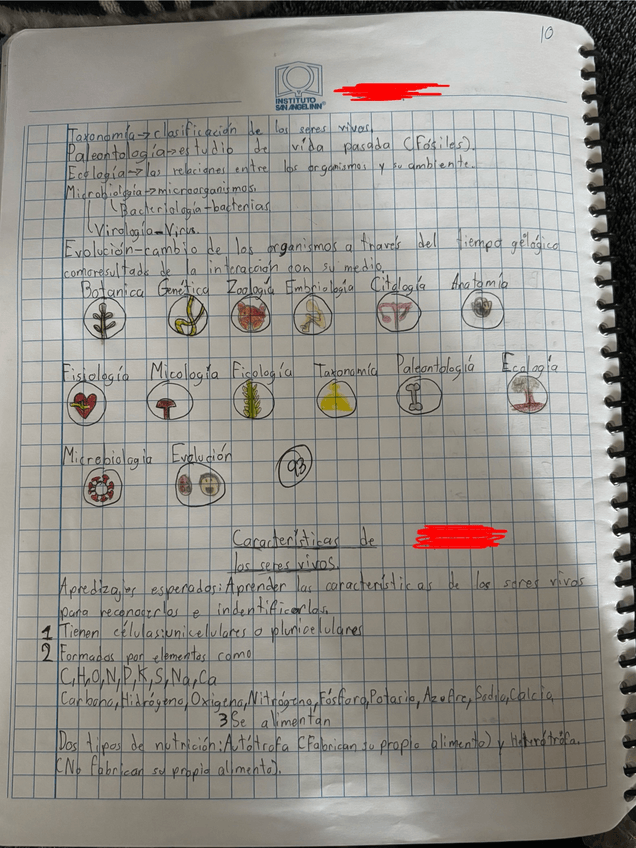 10
INSTITUTO
SAN ANGEL INN
Taxonomía→clasificación de los seres vivos.
Paleontología→estudio de vida pasada (Fósiles).
Ecología→las relaciones entre los organismos y su ambiente.
Microbiología→microorganismos.
Bacteriología-bacterias
Virología-Virus.
Evolución-cambio de los organismos a través del tiempo gelógico
comoresultado de la interacción con su medio.
Botanica Genética Zoología Embriología Citología Anatomía
Fisiología Micología Ficología Taxonomía Paleontología Ecología
Microbiología Evolución 93
Características de
los seres vivos.
Apredizajes esperados: Aprender las características de los seres vivos
para reconocerlos e indentificarlos.
1 Tienen células:unicelulares o pluricelulares
2 Formados por elementos como
C,H,O,N,P,K,S,Na,Ca
Carbono,Hidrógeno,Oxígeno,Nitrógeno,Fósforo,Potasio,Azufre,Sodio,Calcio
3 Se alimentan
Dos tipos de nutrición: Autótrofa (Fabrican su propio alimento) y Heterótrofa.
(No fabrican su propio alimento).